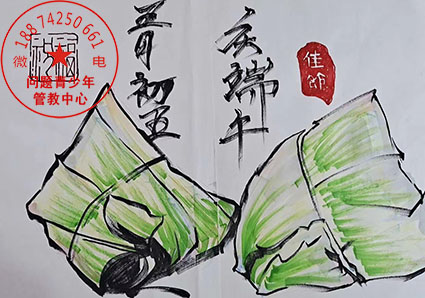 五月初五
庆端午
佳节
18874250661
微 电
问题青少年
管教中心